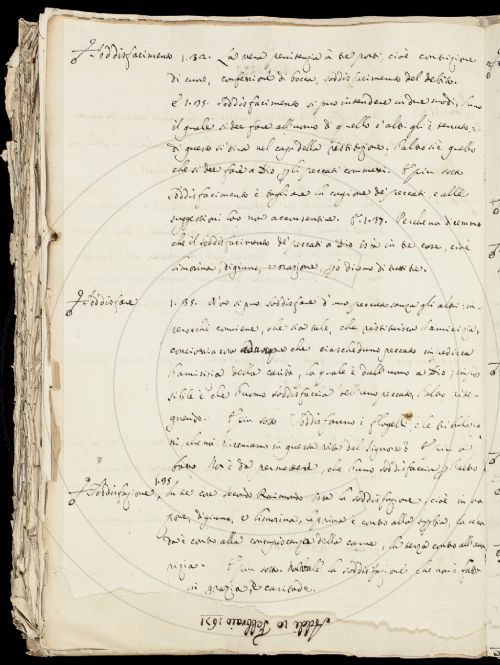 Soddisfacimento 1.132. La vera penitenzia à tre parti, cioè contrizione
di cuore, confession di bocca, soddisfacimento del debito.
E 1.135. Soddisfacimento si puo intendere in due modi, l'uno
il quale si dee fare all'uomo di quello ch'altri gli è tenuto, e
di questo si dirà nel capo della restituzione. L'altro si è quello
che si dee fare a Dio, per gli peccati commessi. E più sotto
Soddisfacimento è tagliare la cagione de' peccati, e alle
suggestioni loro non acconsentire. E 1.137. Perchè noi dicemmo
che il soddisfacimento de' peccati a Dio istà in tre cose, cioè
limosina, digiuno, e orazione, però diremo di tutte tre.
Soddisfare 1.135. Non si può soddisfare d'uno peccato sanza gli altri; im-
perocchè conviene, che sia tale, che restituisca l'amicizia,
conciossiacosa che ciascheduno peccato impedisca
l'amicizia della carità, la quale è dall'uomo a Dio; impos-
sibile è che l'uomo soddisfaccia dell'uno peccato, l'altro rite-
gnendo. E più sotto Soddisfanno i flagelli, e le tribulazio-
ni, che noi riceviamo in questa vita dal Signore? E più a
basso Non è da permettere, che l'uno soddisfaccia per l'altro
Soddisfazione, 1.135 In tre cose secondo Raimondo istà la soddisfazione, cioè in ora-
zione, digiuno, e limosina, la prima è contro alla superbia, la secon-
da è contro alla concupiscenza della carne, la terza contro all'ava-
rizia. E più sotto non vale la soddisfazione che non è fatta
in grazia, e caritade.
Addi 10 Febbraio 1671